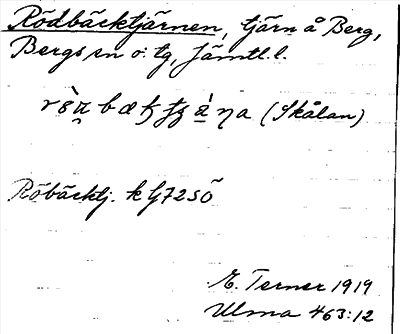 Rödbäckstjärnen, tjärn å Berg,
Bergs sn o. tg, Jämtl. l.
(Skålan)
Röbäcktj. k lj 72 SÖ
E. Terner 1919
Ulma 463:12